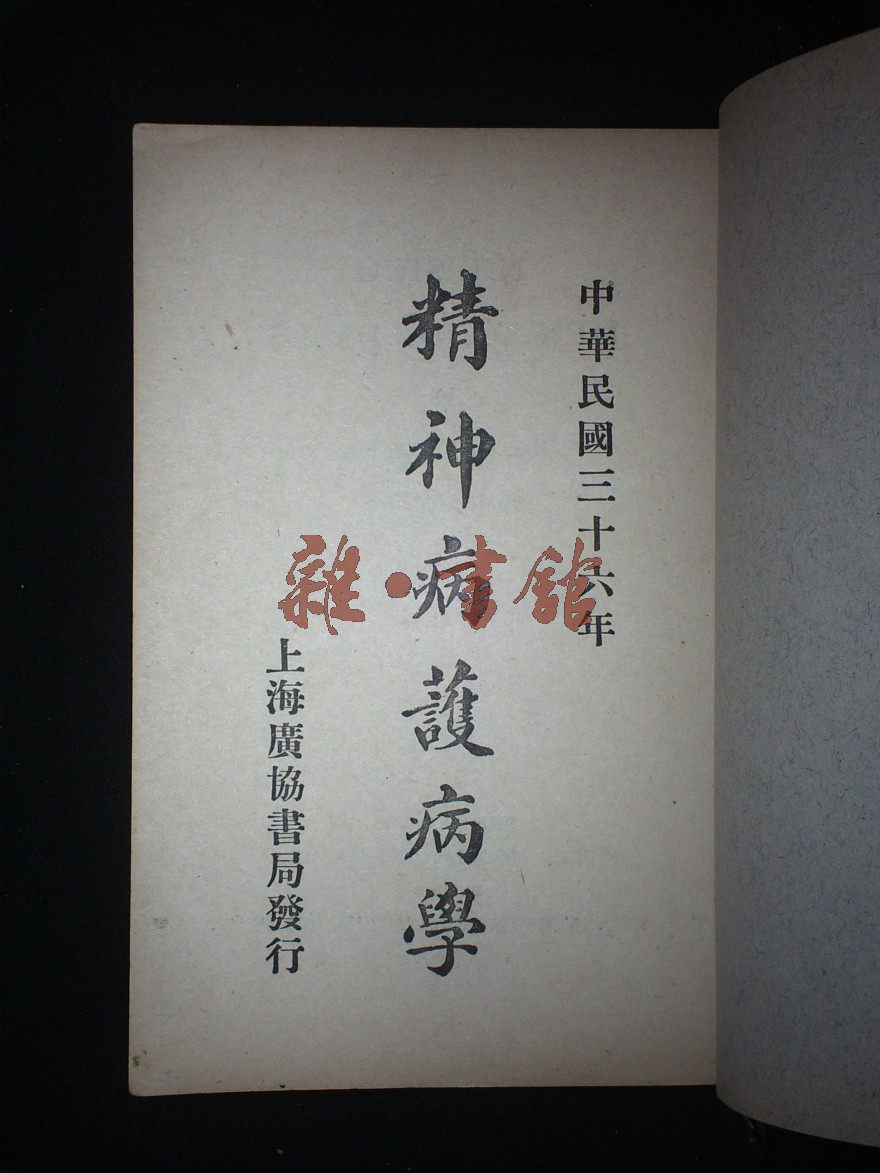 中華民國三十六年
精神病護病學
上海廣協書局發行
雜·書館